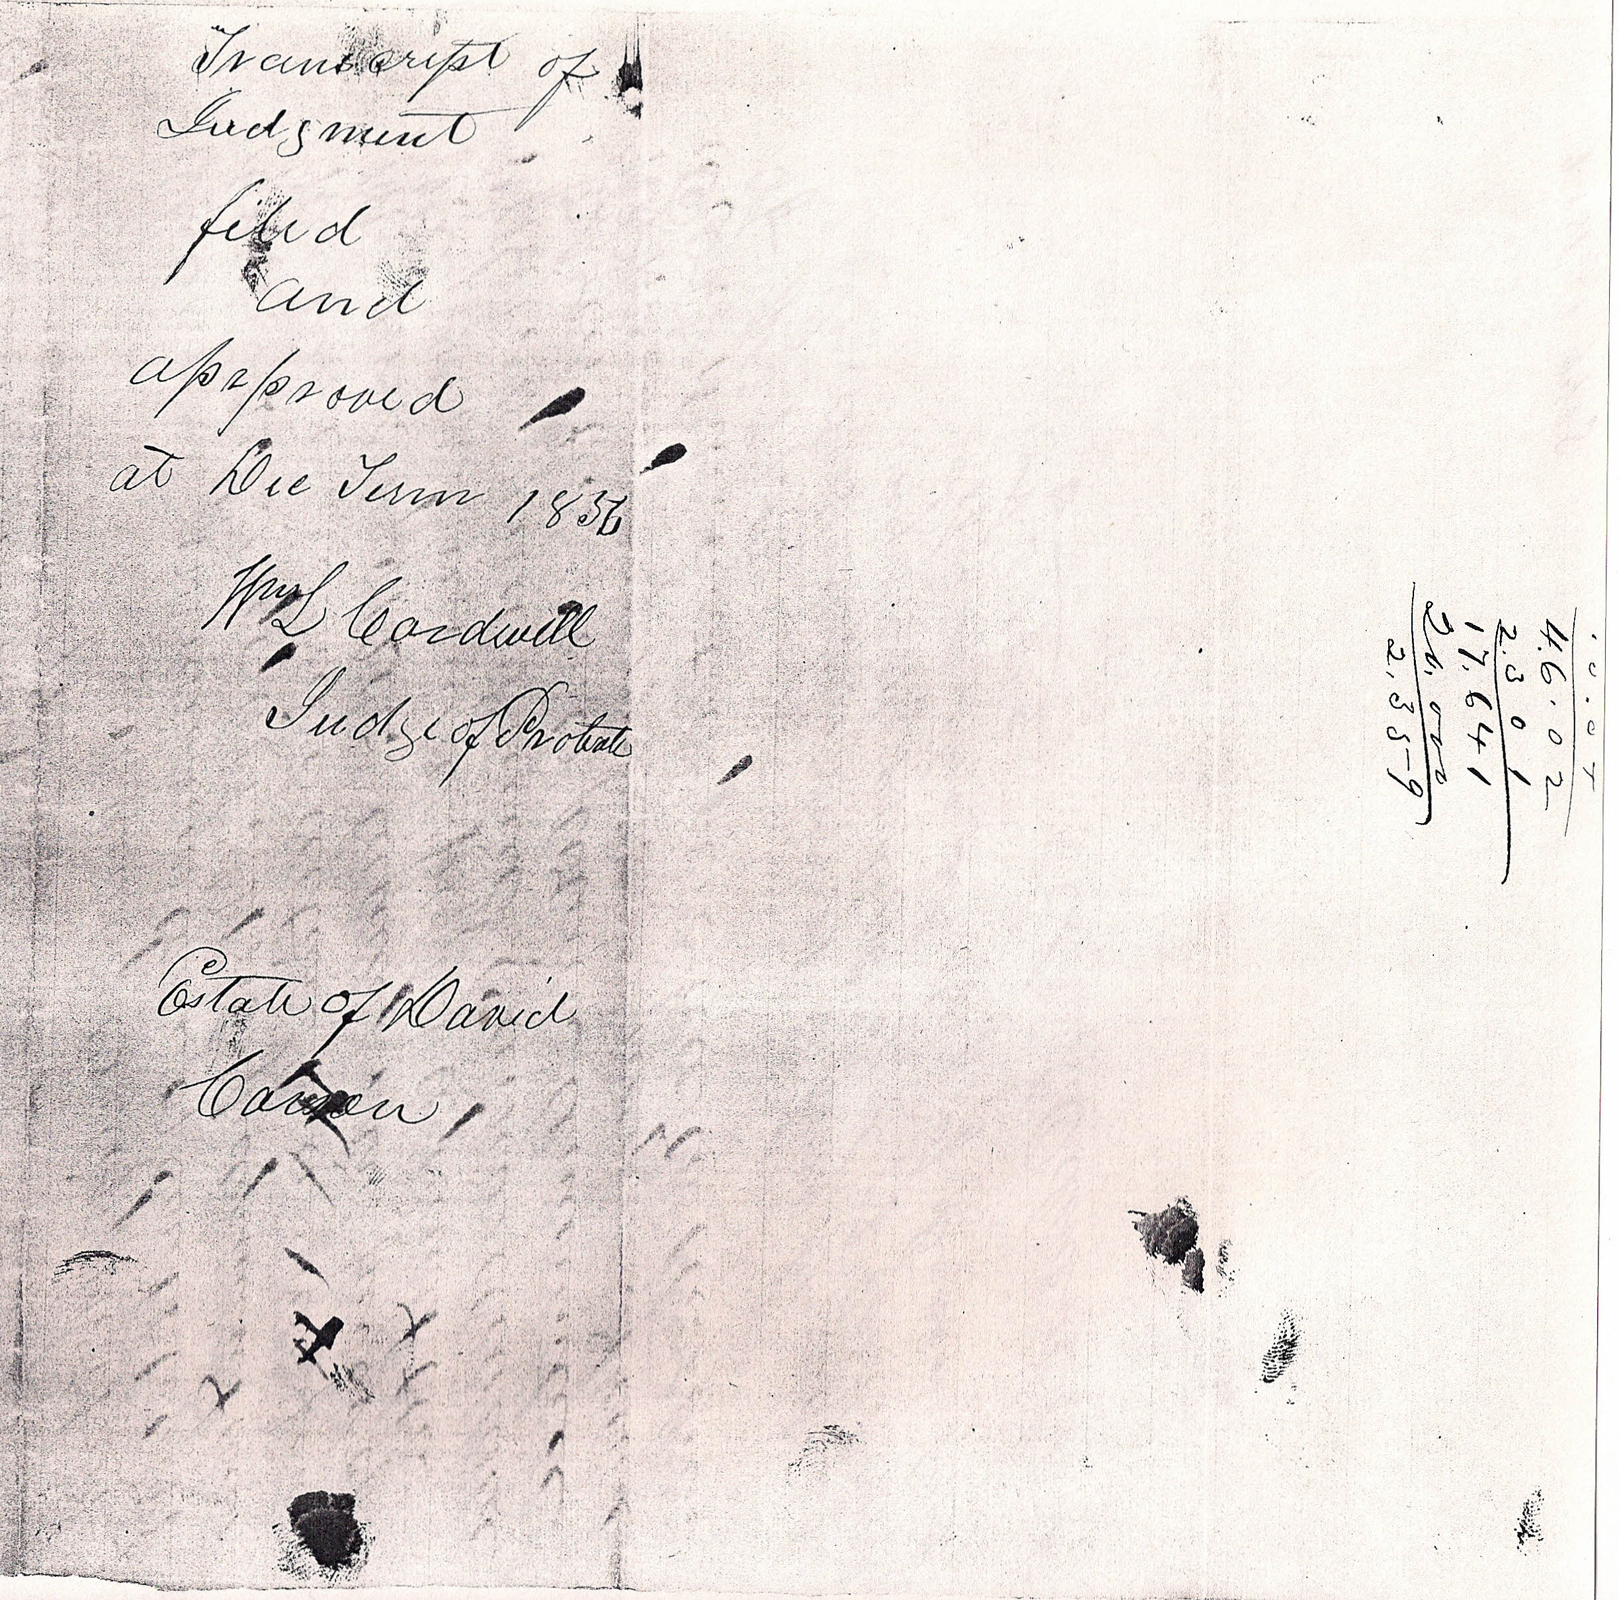 Transcript of
Judgment
filed
and
approved
at Dec Term 1836
Wm L Cardwell
Judge of Probate
Estate of David
Canson
46.02
2.301
17.641
2.359